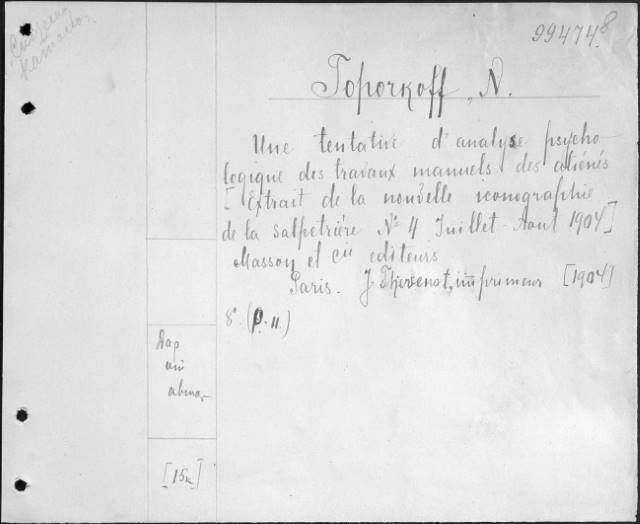 99474.8
Toporkoff, N.
Une tentative d'analyse psycho
logique des travaux manuels des aliénés
[Extrait de la nouvelle iconographie
de la Salpetrière Nº 4 Juillet-Aout 1904]
Masson et Cie editeurs
Paris. J Thevenot, imprimeur [1904]
8º. (p. 11.)
[15к]